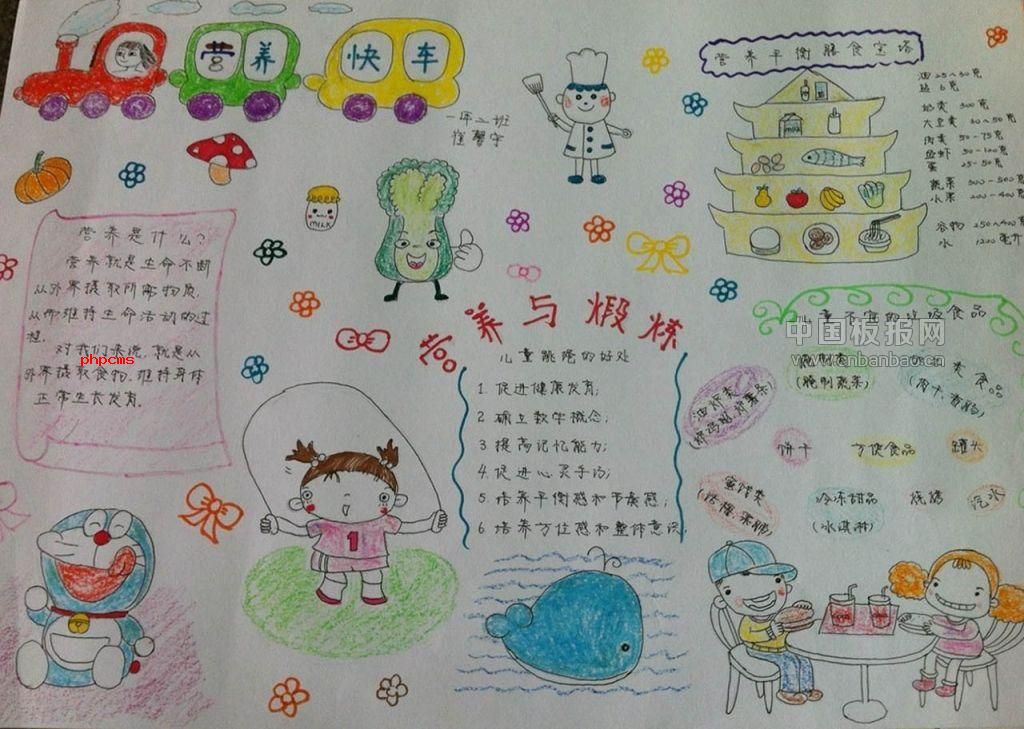 营养快车
一年二班
营养平衡膳食宝塔
油 25~30克
盐 6克
奶类 300克
大豆类 30~50克
肉类 50-75克
鱼虾 50-100克
蛋 25-50克
蔬菜 300-500克
水果 200-400克
谷物 250~400克
水 1200毫升
MILK
营养是什么?
营养就是生命不断
从外界摄取所需物质,
从而维持生命活动的过
程。
对我们来说,就是从
外界摄取食物,维持身体
正常生长发育。
phpcms
营养与煅炼
儿童跳绳的好处
1. 促进健康发育;
2 确立数字概念;
3 提高记忆能力;
4. 促进心灵手巧;
5 培养平衡感和节奏感;
6 培养方位感和整体意识。
1
儿童不宜的垃圾食品
中国板报网
www.cnbanbao.cn
油炸类
腌制类
(腌制蔬菜)
类食品
(肉干,香肠)
饼干
方便食品
罐头
蜜饯类
冷冻甜品
(冰淇淋)
烧烤
汽水